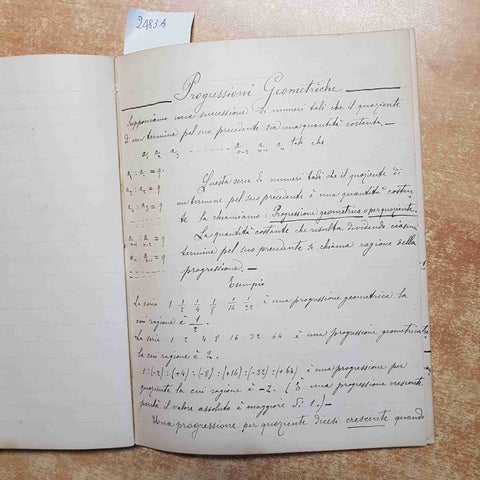 2483A
Progressioni Geometriche
Supponiamo una successione di numeri tali che il quoziente
di un termine pel suo precedente sia una quantità costante. —
a₁ a₂ a₃ - - - - - - - - - aₙ₋₂ aₙ₋₁ aₙ tali che
a₂ : a₁ = q
a₃ : a₂ = q
a₄ : a₃ = q
aₙ : aₙ₋₁ = q
Questa serie di numeri tali che il quoziente di
un termine pel suo precedente è una quantità costan-
te la chiamiamo: Progressione geometrica o per quoziente.
La quantità costante che risulta dividendo ciascun
termine pel suo precedente si chiama ragione della
progressione. —
Esempio
La serie 1 1/2 1/4 1/8 1/16 1/32 è una progressione geometrica la
cui ragione è 1/2. —
La serie 1 2 4 8 16 32 64 è una progressione geometrica
la cui ragione è 2.
1:(-2):(+4):(-8):(+16):(-32):(+64) è una progressione per
quoziente la cui ragione è -2. (È una progressione crescente
perchè il valore assoluto è maggiore di 1.) —
Una progressione per quoziente dicesi crescente quando